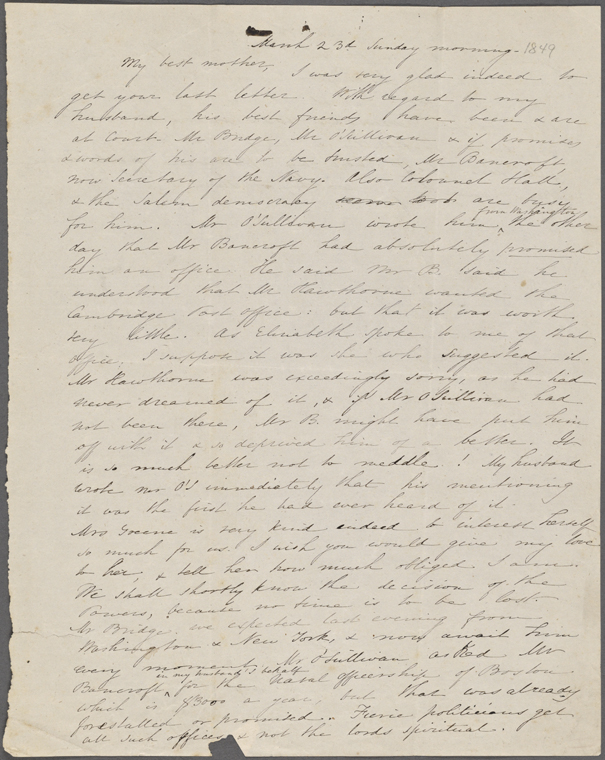 March 23d Sunday morning - 1849
My best mother,
I was very glad indeed to
get your last letter. With regard to my
husband, his best friends have been & are
at Court. Mr Bridge, Mr O'Sullivan & if promises
& words of his are to be trusted, Mr Bancroft
now Secretary of the Navy. Also Colonel Hall,
& the Salem democracy are busy
for him. Mr O'Sullivan wrote him from Washington the other
day that Mr Bancroft had absolutely promised
him an office. He said Mr B. said he
understood that Mr Hawthorne wanted the
Cambridge Post office: but that it was worth
very little. As Elizabeth spoke to me of that
office, I suppose it was she who suggested it.
Mr Hawthorne was exceedingly sorry, as he had
never dreamed of it, & if Mr O'Sullivan had
not been there, Mr B. might have put him
off with it & so deprived him of a better. It
is so much better not to meddle! My husband
wrote Mr O'S immediately that his mentioning
it was the first he had ever heard of it.
Mrs Greene is very kind indeed to interest herself
so much for us. I wish you would give my love
to her, & tell her how much obliged I am.
We shall shortly know the decision of the
Powers, because no time is to be lost.
Mr Bridge, we expected last evening from
Washington & New York, & now await him
every moment. Mr O'Sullivan asked Mr
Bancroft in my husband's behalf for the Naval officership of Boston
which is $3000 a year, but that was already
forestalled or promised. Fierce politicians get
all such offices & not the lords spiritual.